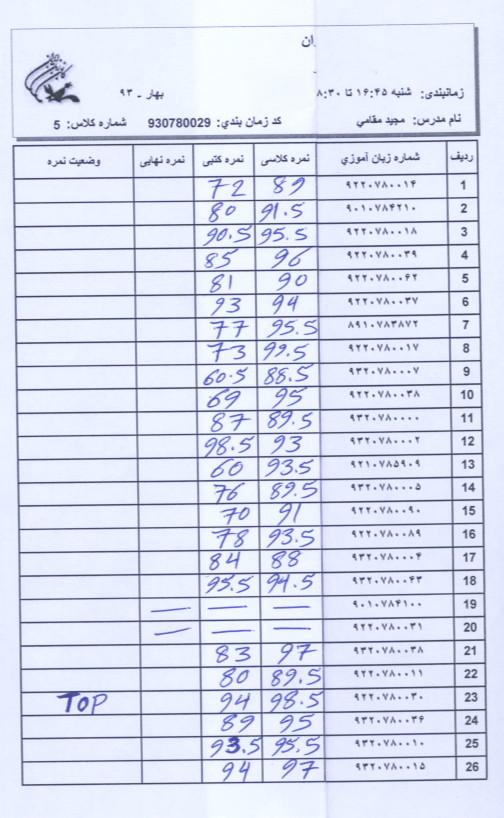 ان
زمانبندی: شنبه ۱۶:۴۵ تا ۸:۳۰ بهار - ۹۳
نام مدرس: مجید مقامی کد زمان بندي: 930780029 شماره کلاس: 5
ردیف شماره زبان آموزي نمره کلاسی نمره کتبی نمره نهایی وضعیت نمره
1 ۹۲۲۰۷۸۰۰۱۴ 89 72
2 ۹۰۱۰۷۸۴۲۱۰ 91.5 80
3 ۹۲۲۰۷۸۰۰۱۸ 95.5 90.5
4 ۹۲۲۰۷۸۰۰۳۹ 96 85
5 ۹۲۲۰۷۸۰۰۶۲ 90 81
6 ۹۲۲۰۷۸۰۰۳۷ 94 93
7 ۸۹۱۰۷۸۳۸۷۲ 95.5 77
8 ۹۲۲۰۷۸۰۰۱۷ 99.5 73
9 ۹۳۲۰۷۸۰۰۰۷ 88.5 60.5
10 ۹۲۲۰۷۸۰۰۳۸ 95 69
11 ۹۳۲۰۷۸۰۰۰۰ 89.5 87
12 ۹۳۲۰۷۸۰۰۰۲ 93 98.5
13 ۹۲۱۰۷۸۵۹۰۹ 93.5 60
14 ۹۳۲۰۷۸۰۰۰۵ 89.5 76
15 ۹۲۲۰۷۸۰۰۹۰ 91 70
16 ۹۲۲۰۷۸۰۰۸۹ 93.5 78
17 ۹۳۲۰۷۸۰۰۰۴ 88 84
18 ۹۳۲۰۷۸۰۰۴۳ 94.5 95.5
19 ۹۰۱۰۷۸۴۱۰۰ — — —
20 ۹۲۲۰۷۸۰۰۳۱ — — —
21 ۹۳۲۰۷۸۰۰۳۸ 97 83
22 ۹۲۲۰۷۸۰۰۱۱ 89.5 80
23 ۹۲۲۰۷۸۰۰۳۰ 98.5 94 TOP
24 ۹۳۲۰۷۸۰۰۳۶ 95 89
25 ۹۳۲۰۷۸۰۰۱۰ 95.5 93.5
26 ۹۳۲۰۷۸۰۰۱۵ 97 94